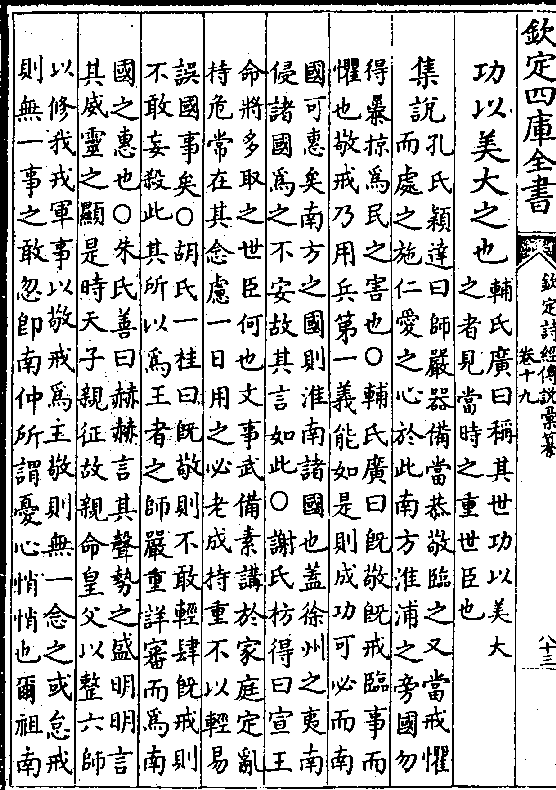 欽定四庫全書
欽定詩經傳說彙纂
卷十九
八十三
功以美大之也
輔氏廣曰稱其世功以美大
之者見當時之重世臣也
集說
孔氏穎達曰師嚴器備當恭敬臨之又當戒懼
而處之施仁愛之心於此南方淮浦之旁國勿
得暴掠為民之害也○輔氏廣曰既敬既戒臨事而
懼也敬戒乃用兵第一義能如是則成功可必而南
國可惠矣南方之國則淮南諸國也蓋徐州之夷南
侵諸國為之不安故其言如此○謝氏枋得曰宣王
命將多取之世臣何也文事武備素講於家庭定亂
持危常在其念慮一日用之必老成持重不以輕易
誤國事矣○胡氏一桂曰既敬則不敢輕肆既戒則
不敢妄殺此其所以為王者之師嚴重詳審而為南
國之惠也○朱氏善曰赫赫言其聲勢之盛明明言
其威靈之顯是時天子親征故親命皇父以整六師
以修我戎軍事以敬戒為主敬則無一念之或怠戒
則無一事之敢忽卽南仲所謂憂心悄悄也爾祖南